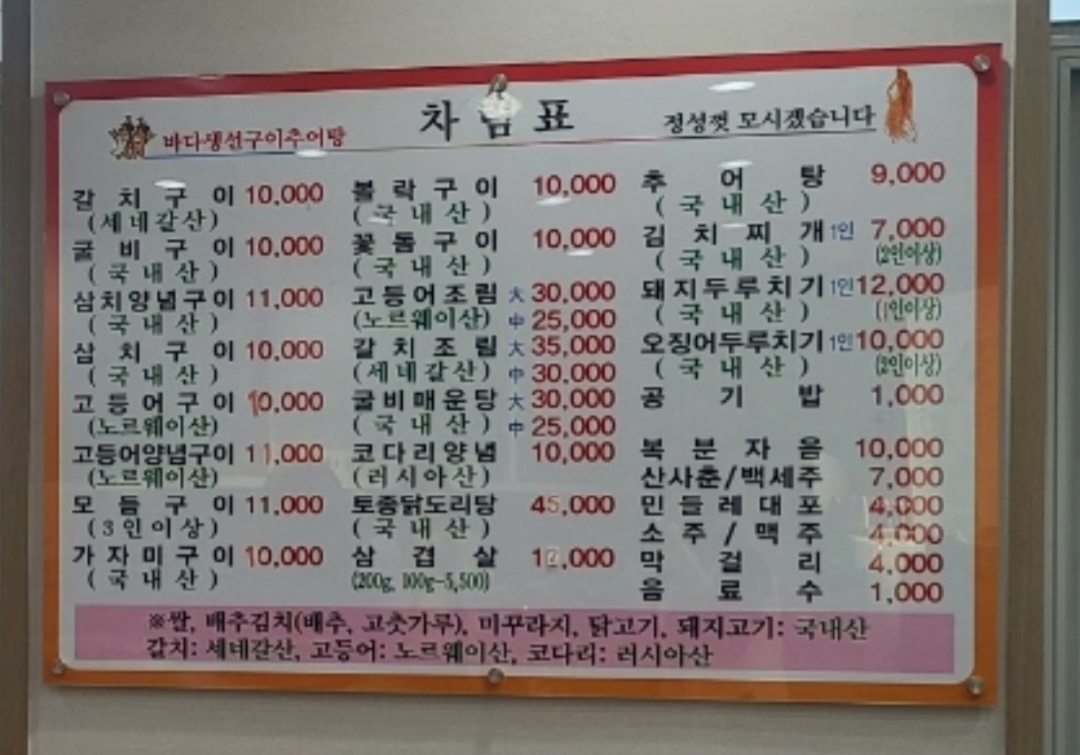 바다생선구이추어탕
차림표
정성껏 모시겠습니다
갈치구이 10,000
(세네갈산)
굴비구이 10,000
(국내산)
삼치양념구이 11,000
(국내산)
삼치구이 10,000
(국내산)
고등어구이 10,000
(노르웨이산)
고등어양념구이 11,000
(노르웨이산)
모듬구이 11,000
(3인이상)
가자미구이 10,000
(국내산)
볼락구이 10,000
(국내산)
꽃돔구이 10,000
(국내산)
고등어조림 大 30,000
(노르웨이산) 中 25,000
갈치조림 大 35,000
(세네갈산) 中 30,000
굴비매운탕 大 30,000
(국내산) 中 25,000
코다리양념 10,000
(러시아산)
토종닭도리탕 45,000
(국내산)
삼겹살 12,000
(200g, 100g-5,500)
추어탕 9,000
(국내산)
김치찌개 1인 7,000
(국내산) (2인이상)
돼지두루치기 1인 12,000
(국내산) (1인이상)
오징어두루치기 1인 10,000
(국내산) (2인이상)
공기밥 1,000
복분자음 10,000
산사춘/백세주 7,000
민들레대포 4,000
소주/맥주 4,000
막걸리 4,000
음료수 1,000
※쌀, 배추김치(배추, 고춧가루), 미꾸라지, 닭고기, 돼지고기: 국내산
갈치: 세네갈산, 고등어: 노르웨이산, 코다리: 러시아산